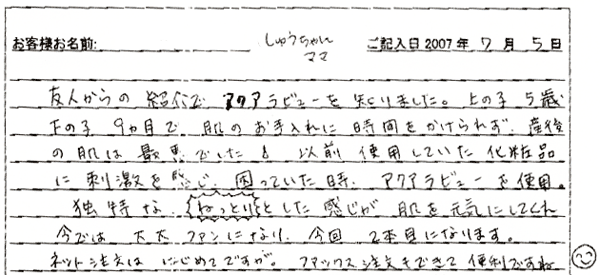 お客様お名前: しゅうちゃんママ ご記入日 2007年 7月 5日
友人からの紹介で アクアラビューを知りました。上の子 5歳
下の子 9ヵ月で 肌のお手入れに時間をかけられず、産後
の肌は最悪でした。以前使用していた化粧品
に刺激を感じ、困っていた時、アクアラビューを使用。
独特な ねっとりとした感じが 肌を元気にしてくれ
今では 大大ファンになり、今回 2本目になります。
ネット注文は はじめてですが。ファックス注文もできて便利ですね